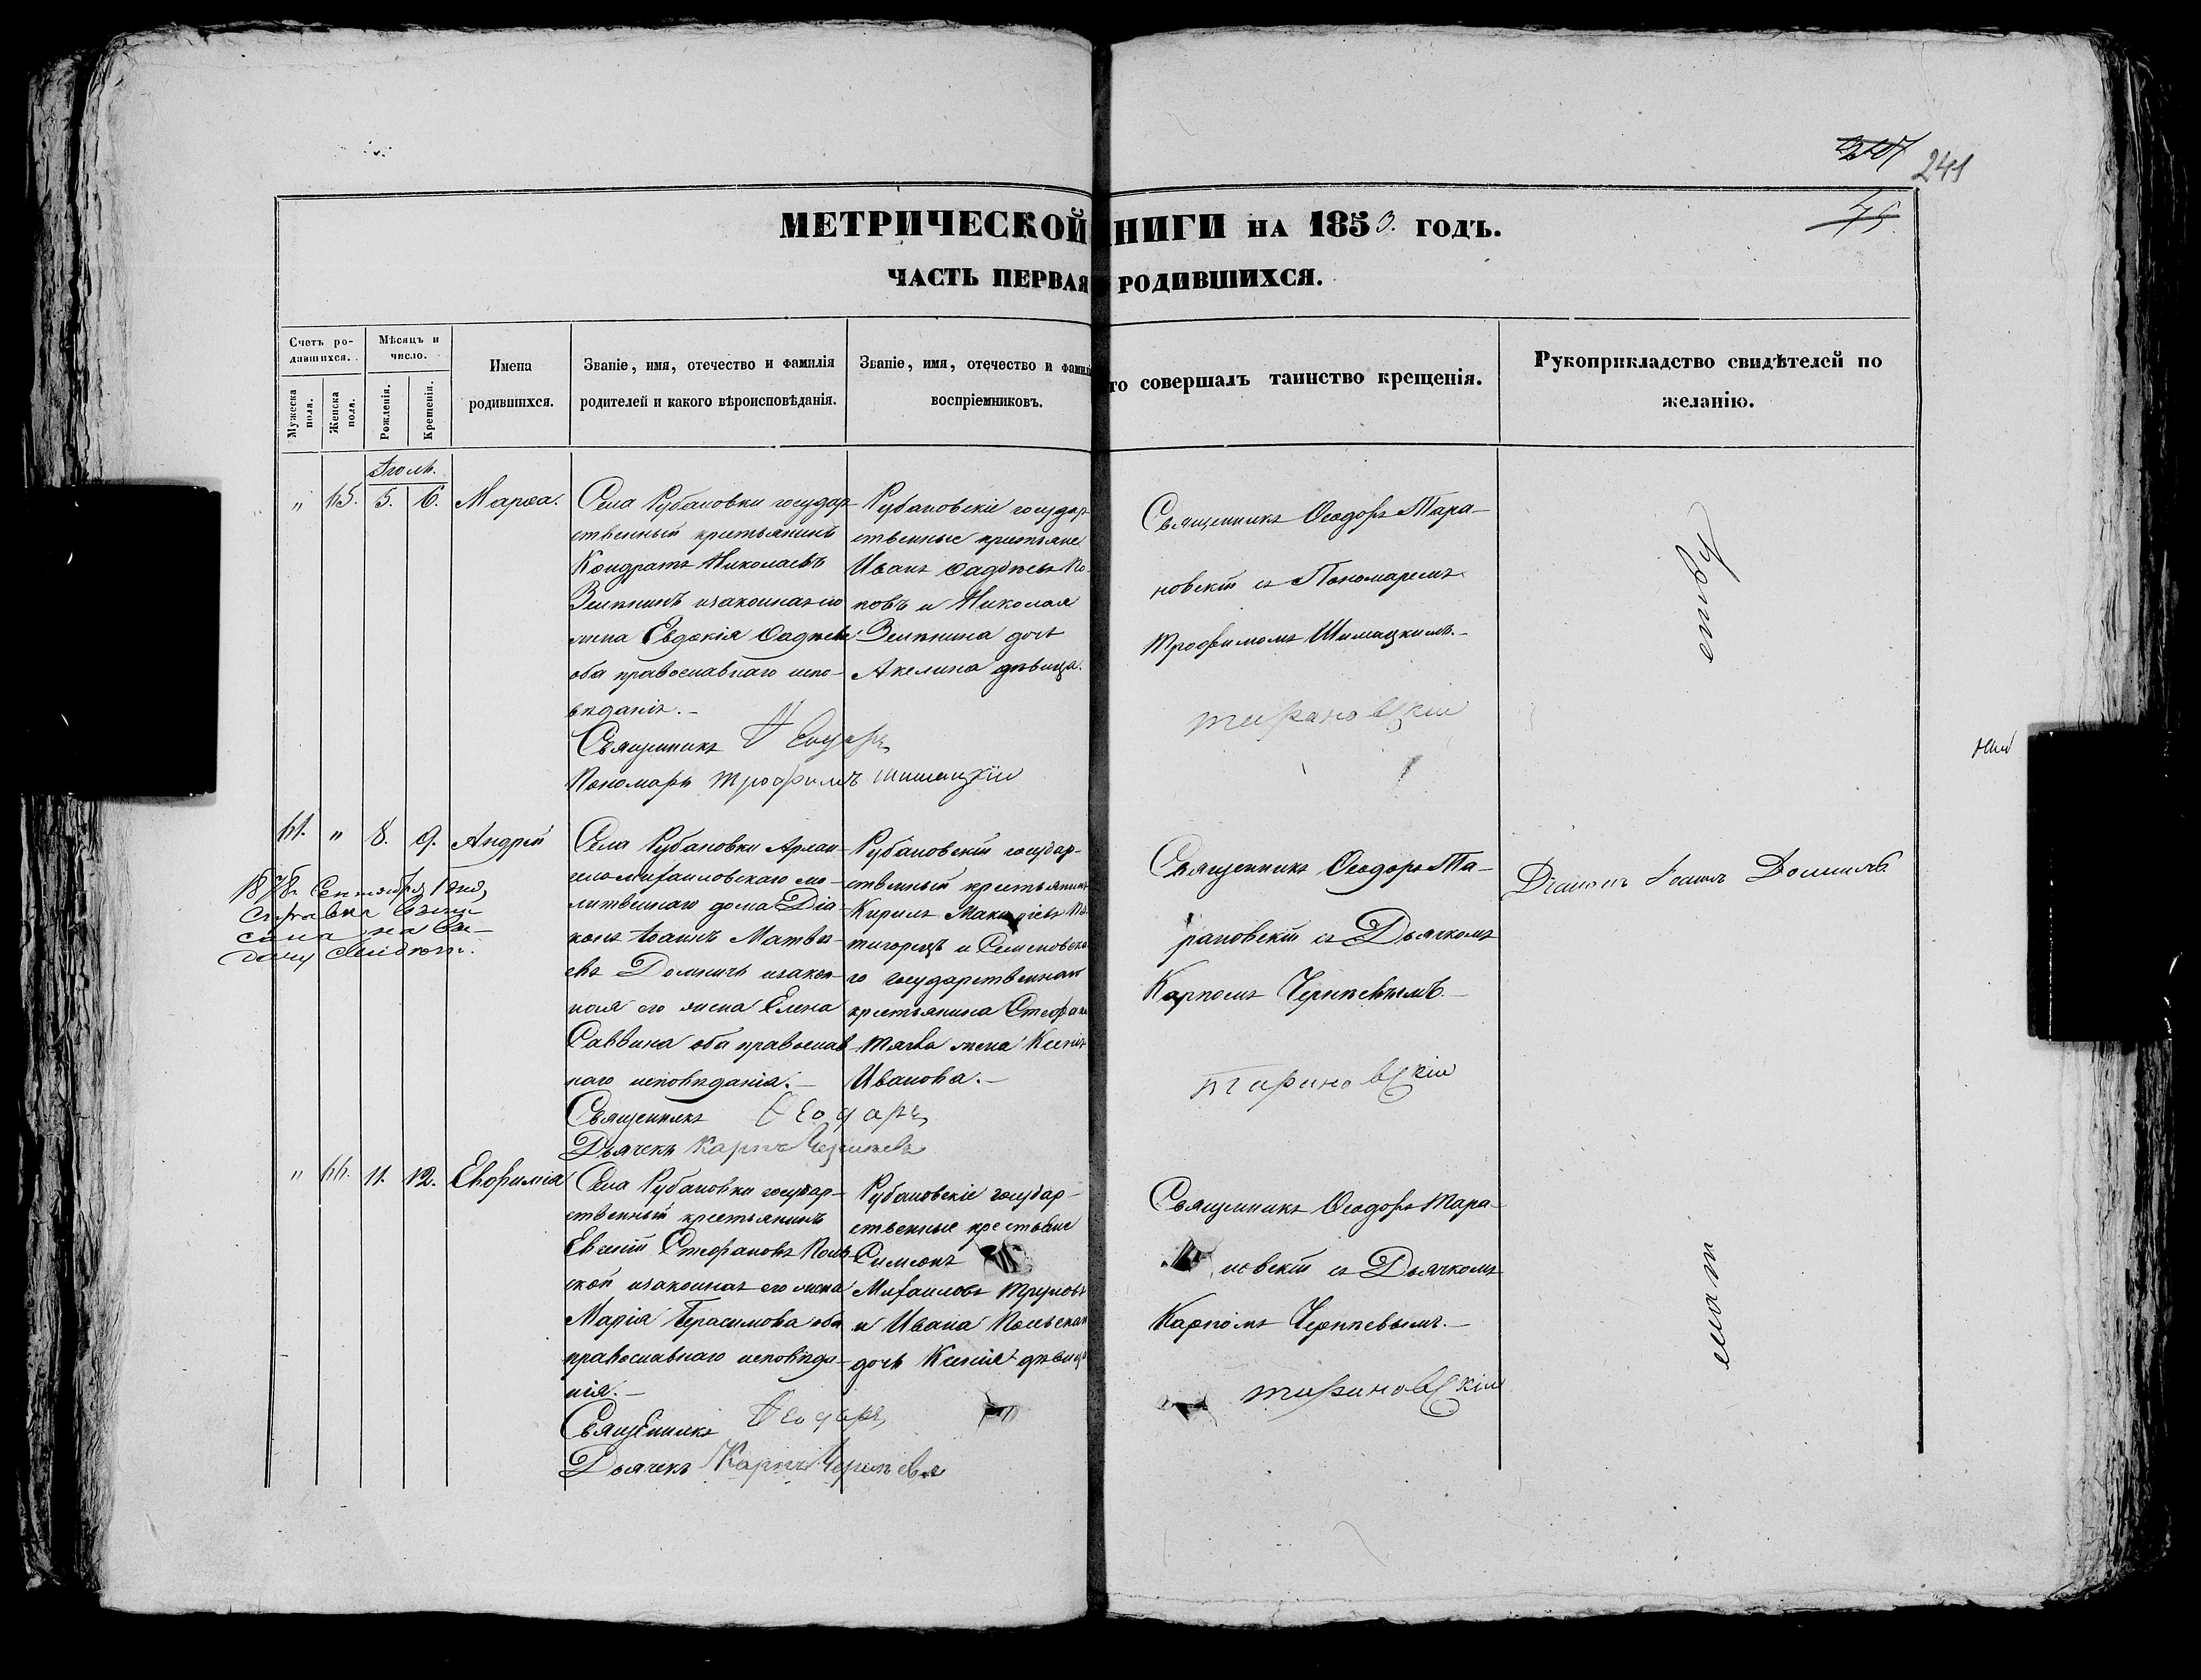 207
241
45
МЕТРИЧЕСКОЙ НИГИ НА 1853. ГОДЪ.
ЧАСТЬ ПЕРВАЯ РОДИВШИХСЯ.
Счетъ ро-
дившихся.
Мужеска пола.
Женска пола.
Мѣсяцъ и
число.
Рожденія.
Крещенія.
Имена
родившихся.
Званіе, имя, отечество и фамилія
родителей и какого вѣроисповѣданія.
Званіе, имя, отечество и фамилі
воспріемниковъ.
то совершалъ таинство крещенія.
Рукоприкладство свидѣтелей по
желанію.
Іюль.
" 65. 5. 6. Марѳа.
Села Рубановки государ-
ственный крестьянинъ
Кондратъ Николаевъ
Земнинъ изаконная его
жена Евдокія Ѳадѣева
оба православнаго испо-
вѣданія.-
Священникъ Ѳеодоръ
Пономарь Трофимъ Шишацкій
Рубановскіе государ-
ственные крестьяне
Иванъ Ѳадѣевъ По-
повъ и Николая
Земнина дочь
Акелина дѣвица.
Священникъ Ѳеодоръ Тара-
новскій съ Пономаремъ
Трофимомъ Шишацкимъ.-
Тарановскій
ству
61. " 8. 9. Андрей
1878 Сентября 1 дня,
справка
на вы-
дачу
Села Рубановки Архан-
гело-михаиловскаго мо-
литвеннаго дома Діа-
конъ Іоаннъ Матвѣ-
евъ Домничъ изакон-
ная его жена Елена
Саввина оба православ-
наго исповѣданія.-
Священникъ Ѳеодоръ
Дьячекъ Карпъ Черняевъ
Рубановскій государ-
ственный крестьянинъ
Кирилъ Макиріевъ Пя-
тигорецъ и Семеновска-
го государственнаго
крестьянина Стефана
жена Ксенія
Иванова.-
Священникъ Ѳеодоръ Та-
рановскій съ Дьячкомъ
Карпомъ Черняевымъ.-
Тарановскій
Діаконъ Іоаннъ Домничъ
" 66. 11. 12. Евфимія
Села Рубановки государ-
ственный крестьянинъ
Евсевій Стефановъ
изаконная его жена
Марія Герасимова оба
православнаго исповѣда-
нія.-
Священникъ Ѳеодоръ
Дьячекъ Карпъ Черняевъ
Рубановскіе государ-
ственные крестьяне
Симеонъ
Михаиловъ
и Ивана
дочь Ксенія дѣвица
Священникъ Ѳеодоръ Тара-
новскій съ Дьячкомъ
Карпомъ Черняевымъ.-
Тарановскій